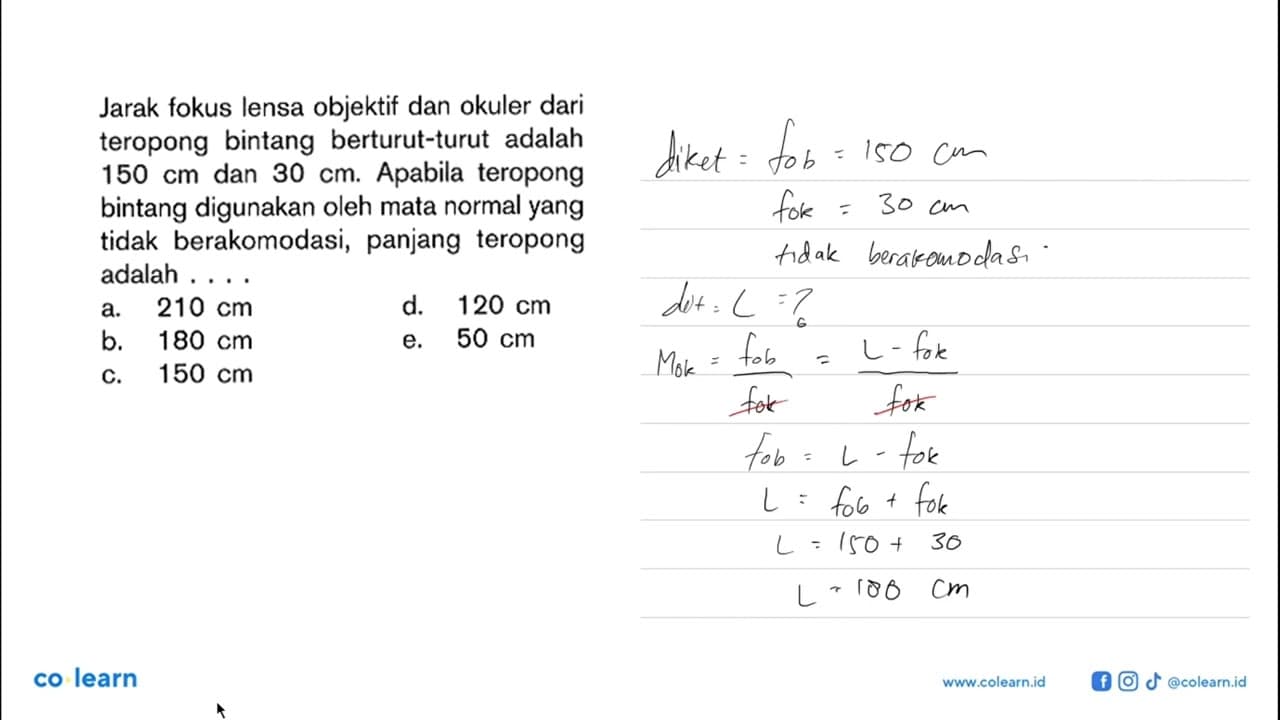 Jarak fokus lensa objektif dan okuler dari
teropong bintang berturut-turut adalah
150 cm dan 30 cm. Apabila teropong
bintang digunakan oleh mata normal yang
tidak berakomodasi, panjang teropong
adalah . . . .
a. 210 cm
b. 180 cm
c. 150 cm
d. 120 cm
e. 50 cm
diket = fob = 150 cm
fok = 30 cm
tidak berakomodasi
dit = L = ?
Mok = fob / fok = L - fok / fok
fob = L - fok
L = fob + fok
L = 150 + 30
L = 180 cm
co learn
www.colearn.id
@colearn.id